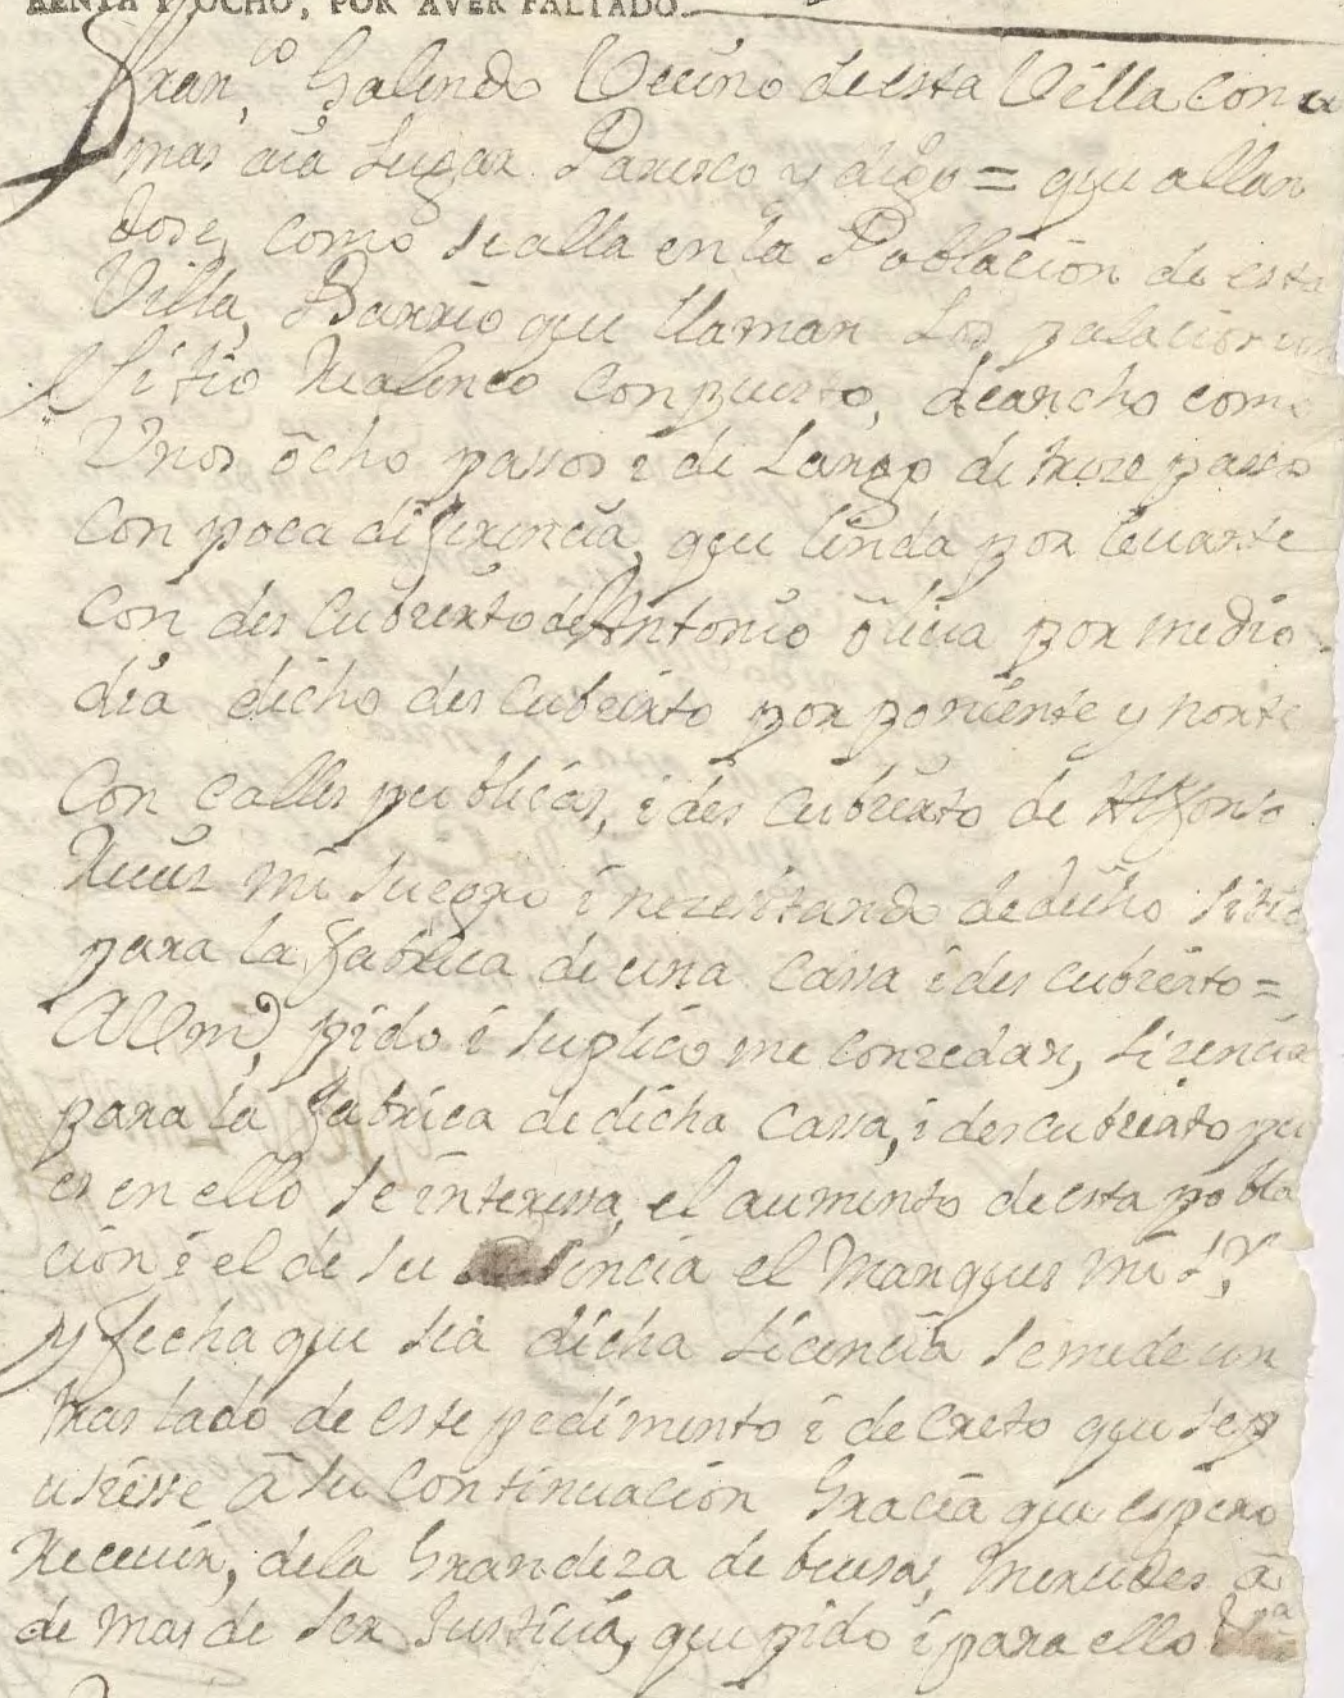 RENTA Y OCHO, POR AVER FALTADO.
Fran,co Galindo Vecino de esta Villa Con a
mas aia Lugar. Paresco y digo = que allan
dose, como se alla en la Poblacion de esta
Villa, Barrio que llaman Los palacios un
Sitio Realenco Conpuesto, de ancho como
Unos ocho passos i de Largo de treze passo
Con poca diferencia, que linda por levante
Con des Cubierto de Antonio oliva por medio
dia dicho des Cubierto por poniente y norte
Con Calles publicas, i des Cubierto de Alfonso
mi suegro i nezesitando de dicho sitio
para la fabrica de una Cassa i des cubierto =
A Vmd, pido i suplico me Conzedan, Lizencia
para la fabrica de dicha Cassa, i des cubierto pu
es en ello se interessa, el aumento de esta pobla
cion i el de su el Marques mi Sr,
y fecha que sea dicha Licencia se me de un
traslado de este pedimento i decreto que se p
usiesse a su Continuacion Gracia que espero
Recevir, de la Grandeza de buesas, Mercedes a
de mas de ser Justicia, que pido i para ello